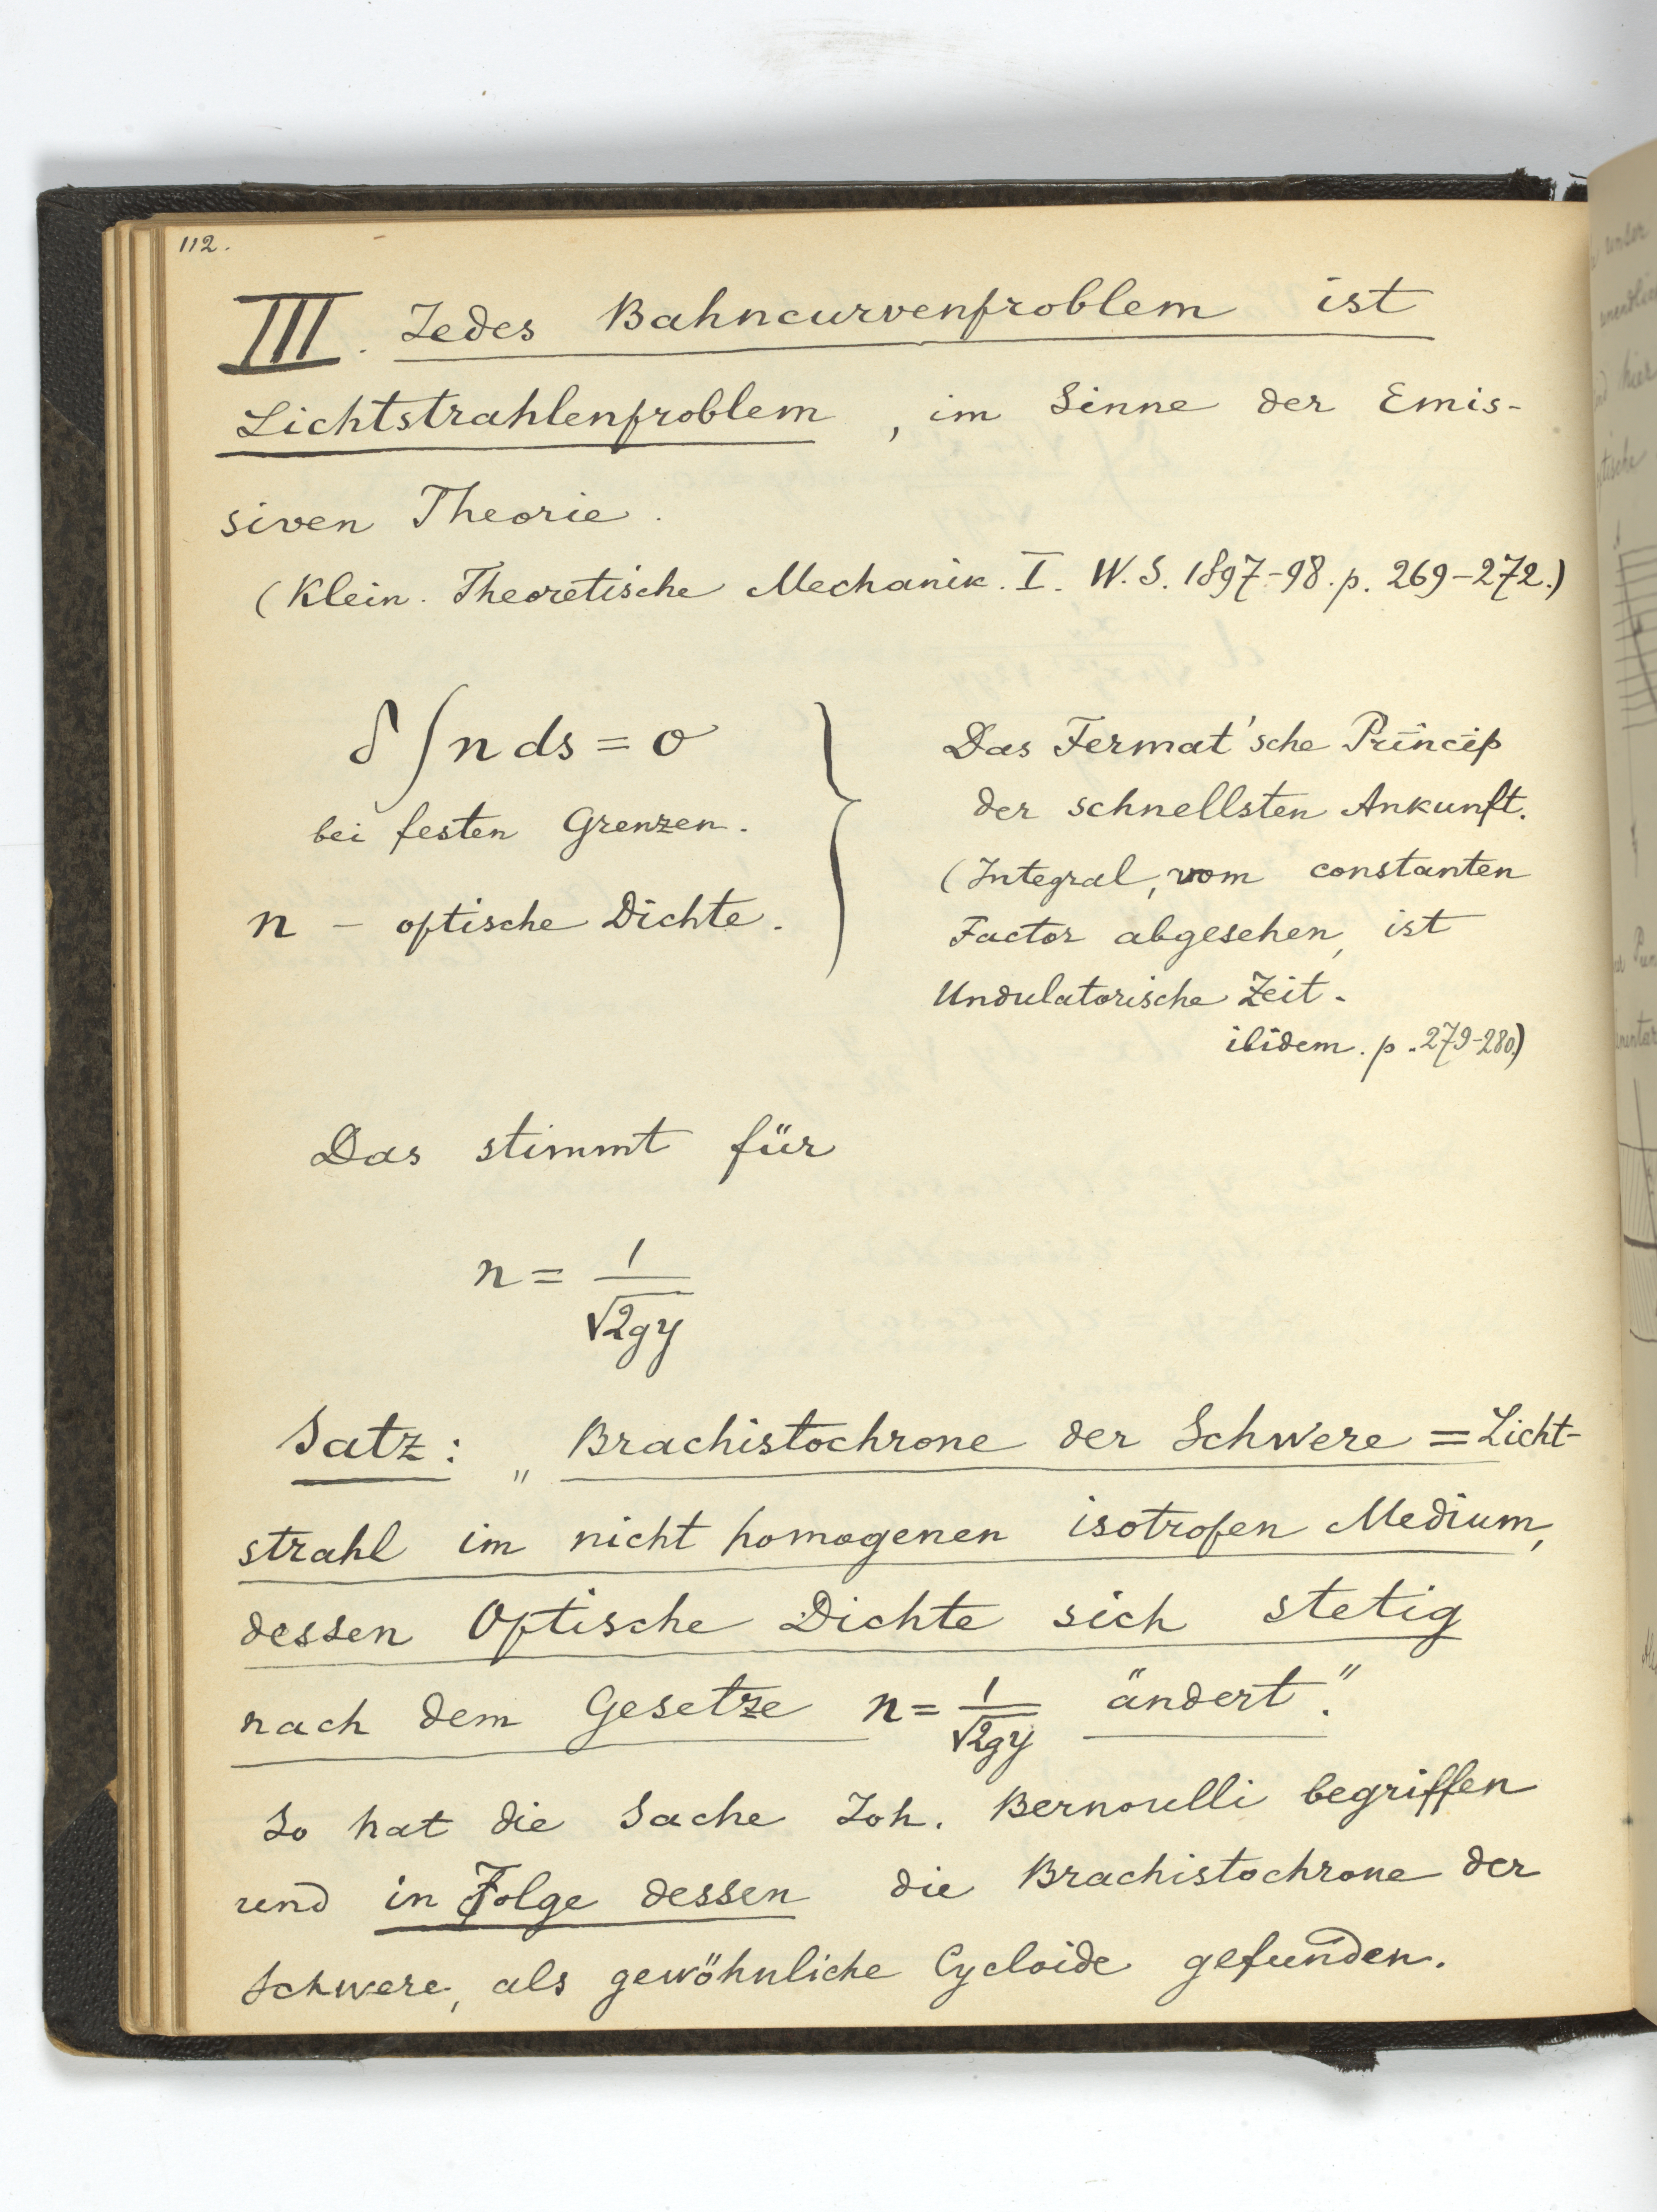 112.
III. Jedes Bahncurvenproblem ist
Lichtstrahlenproblem, im Sinne der Emis-
siven Theorie.
(Klein. Theoretische Mechanik. I. W. S. 1897-98. p. 269-272.)
δ∫n ds = 0
bei festen Grenzen.
n – optische Dichte.
Das Fermat'sche Princip
der schnellsten Ankunft.
(Integral, vom constanten
Factor abgesehen, ist
Undulatorische Zeit.
ibidem. p. 279-280)
Das stimmt für
n = 1/√2gy
Satz: „Brachistochrone der Schwere = Licht-
strahl im nicht homogenen isotropen Medium,
dessen Optische Dichte sich stetig
nach dem Gesetze n = 1/√2gy ändert."
So hat die Sache Joh. Bernoulli begriffen
und in Folge dessen die Brachistochrone der
Schwere, als gewöhnliche Cycloide gefunden.
unser
hier